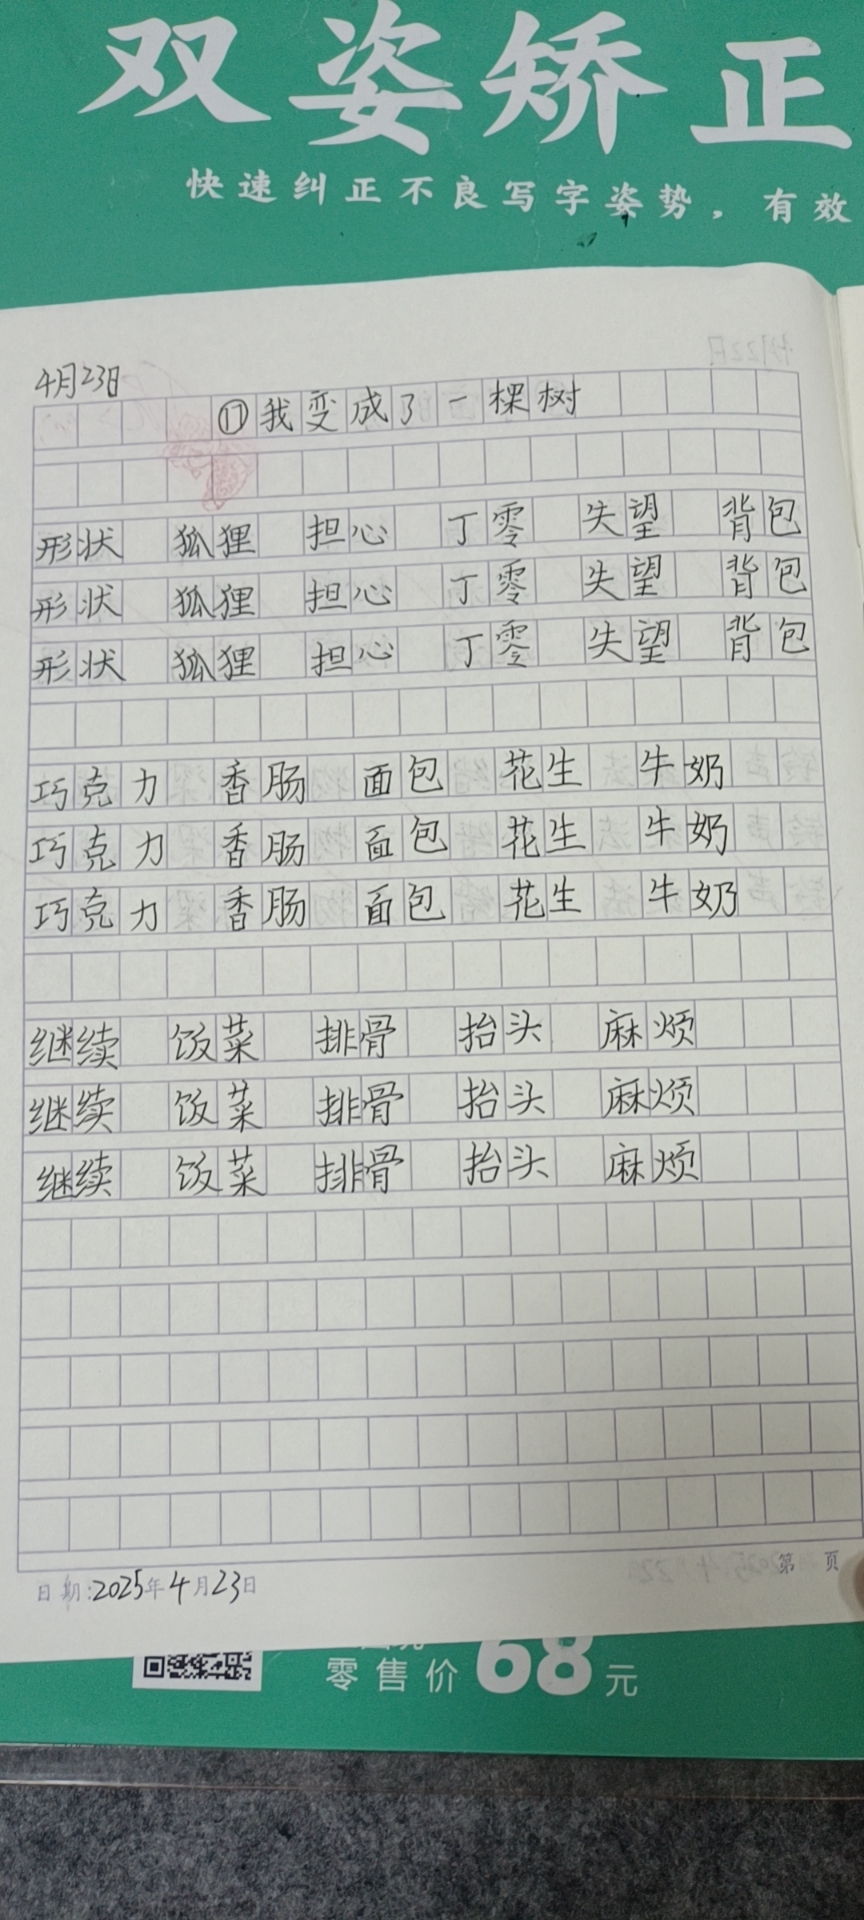 双姿矫正
快速纠正不良写字姿势，有效
4月23日
⑰我变成了一棵树
形状 狐狸 担心 丁零 失望 背包
形状 狐狸 担心 丁零 失望 背包
形状 狐狸 担心 丁零 失望 背包
巧克力 香肠 面包 花生 牛奶
巧克力 香肠 面包 花生 牛奶
巧克力 香肠 面包 花生 牛奶
继续 饭菜 排骨 抬头 麻烦
继续 饭菜 排骨 抬头 麻烦
继续 饭菜 排骨 抬头 麻烦
第 页
日期:2025年4月23日
零售价68元